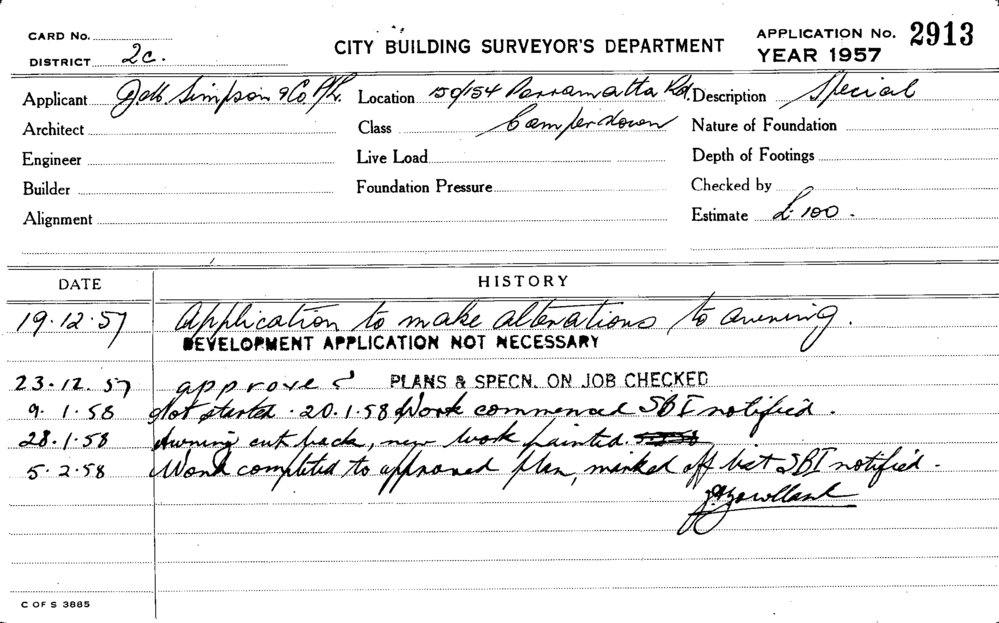 CARD No.
CITY BUILDING SURVEYOR'S DEPARTMENT
APPLICATION No. 2913
DISTRICT 2c.
YEAR 1957
Applicant Simpson & Co P/L. Location 150/154 Parramatta Rd. Description Special
Architect Class Camperdown Nature of Foundation
Engineer Live Load Depth of Footings
Builder Foundation Pressure Checked by
Alignment Estimate £100.
DATE HISTORY
19.12.57 Application to make alterations to awning.
DEVELOPMENT APPLICATION NOT NECESSARY
23.12.57 approved PLANS & SPECN. ON JOB CHECKED
9.1.58 Not started. 20.1.58 Work commenced SBI notified.
28.1.58 Awning cut back, new work painted.
5.2.58 Work completed to approved plan, marked off list SBI notified.
C OF S 3885